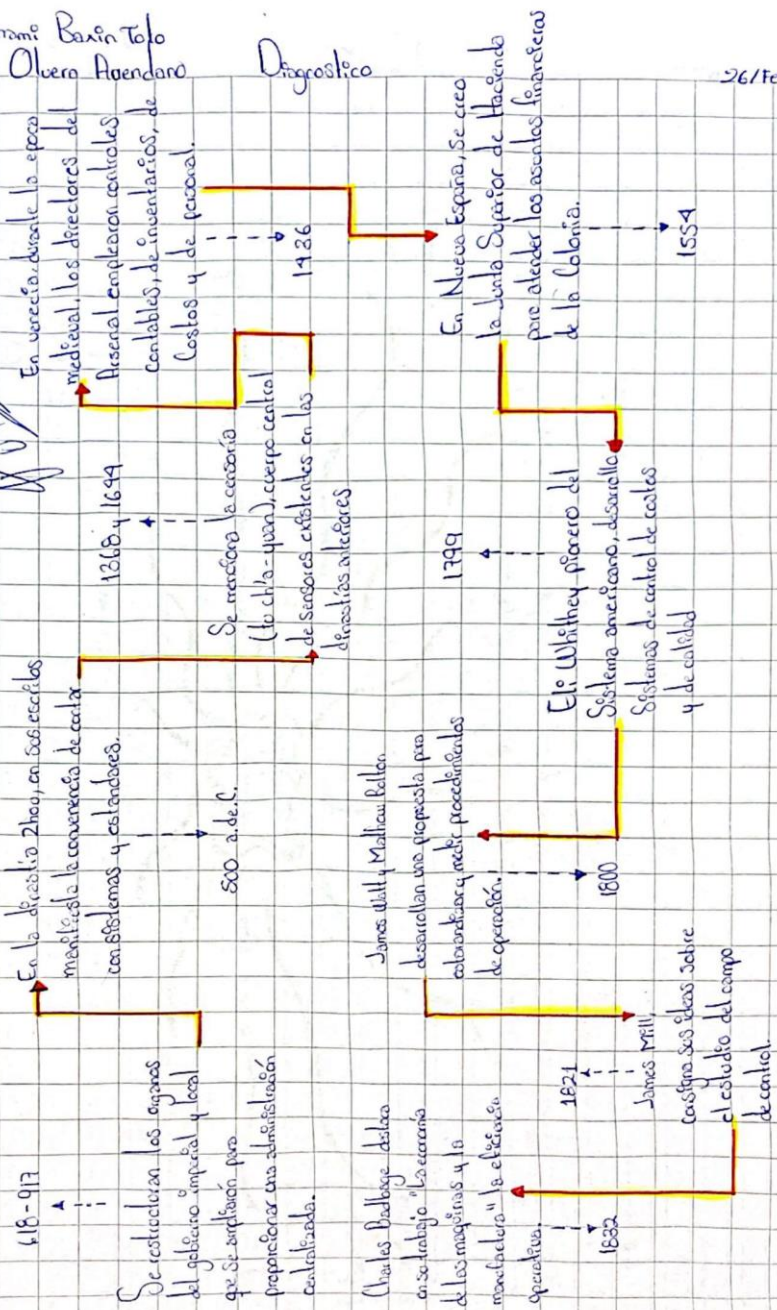 rami Barin Tolo
Olvera Avendaro
Diagnostico
26/Fe
618-917
Se restructuran los organos
del gobierno imperial y local
que se ampliarón para
proporcionar una administración
centralizada.
En la dinastia Zhoo, en sus escritos
manifiesta la convenencia de contar
con sistemas y estandares.
500 a.de.C.
1368 y 1644
Se menciona la censoria
(to ch'a-yuan), cuerpo central
de sensores existentes en las
dinastías anteriores
En venecia, durante la epoca
medieval, los directores del
Arsenal emplearon controles
contables, de inventarios, de
Costos y de personal.
1436
En Nueva España, se creo
la Junta Superior de Hacienda
para atender los asuntos financieras
de la Colonia.
1554
1799
Eli Whithney pionero del
Sistema americano, desarrolla
Sistemas de control de costes
y de calidad
James Watt y Mathiew Bolton
desarrollan una propuesta para
estandarizar y medir procedimientos
de operación.
1800
1821
James Mill,
consigna sus ideas sobre
el estudio del campo
de control.
Charles Badbage destaca
en su trabajo "La economia
de las maquinas y la
manofactura" la eficiencia
operativa.
1832